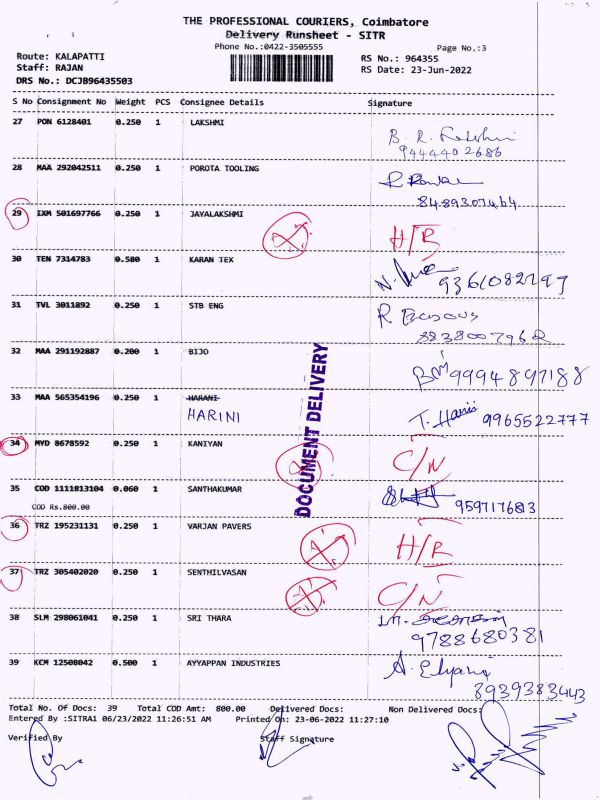 THE PROFESSIONAL COURIERS, Coimbatore
Delivery Runsheet - SITR
Phone No.:0422-3505555
Page No.:3
Route: KALAPATTI
RS No.: 964355
Staff: RAJAN
RS Date: 23-Jun-2022
DRS No.: DCJB96435503
S No Consignment No Weight PCS Consignee Details Signature
27 PON 6128401 0.250 1 LAKSHMI
9444402686
28 MAA 292042511 0.250 1 POROTA TOOLING
8489307464
29 IXM 501697766 0.250 1 JAYALAKSHMI H/B
30 TEN 7314783 0.580 1 KARAN TEX
31 TVL 3011892 0.250 1 STB ENG
32 MAA 291192887 0.200 1 BIJO 9994897188
33 MAA 565354196 0.250 1 HARANI
HARINI T. Harini 9965522777
34 MYD 8678592 0.250 1 KANIYAN C/N
35 COD 1111813104 0.060 1 SANTHAKUMAR 9597176813
COD Rs.800.00
36 TRZ 195231131 0.250 1 VARJAN PAVERS
37 TRZ 305402020 0.250 1 SENTHILVASAN C/N
38 SLM 298061041 0.250 1 SRI THARA
9788680381
39 KCM 12508042 0.500 1 AYYAPPAN INDUSTRIES
8939383443
DOCUMENT DELIVERY
Total No. Of Docs: 39 Total COD Amt: 800.00 Delivered Docs: Non Delivered Docs:
Entered By :SITRA1 06/23/2022 11:26:51 AM Printed On: 23-06-2022 11:27:10
Verified By Staff Signature